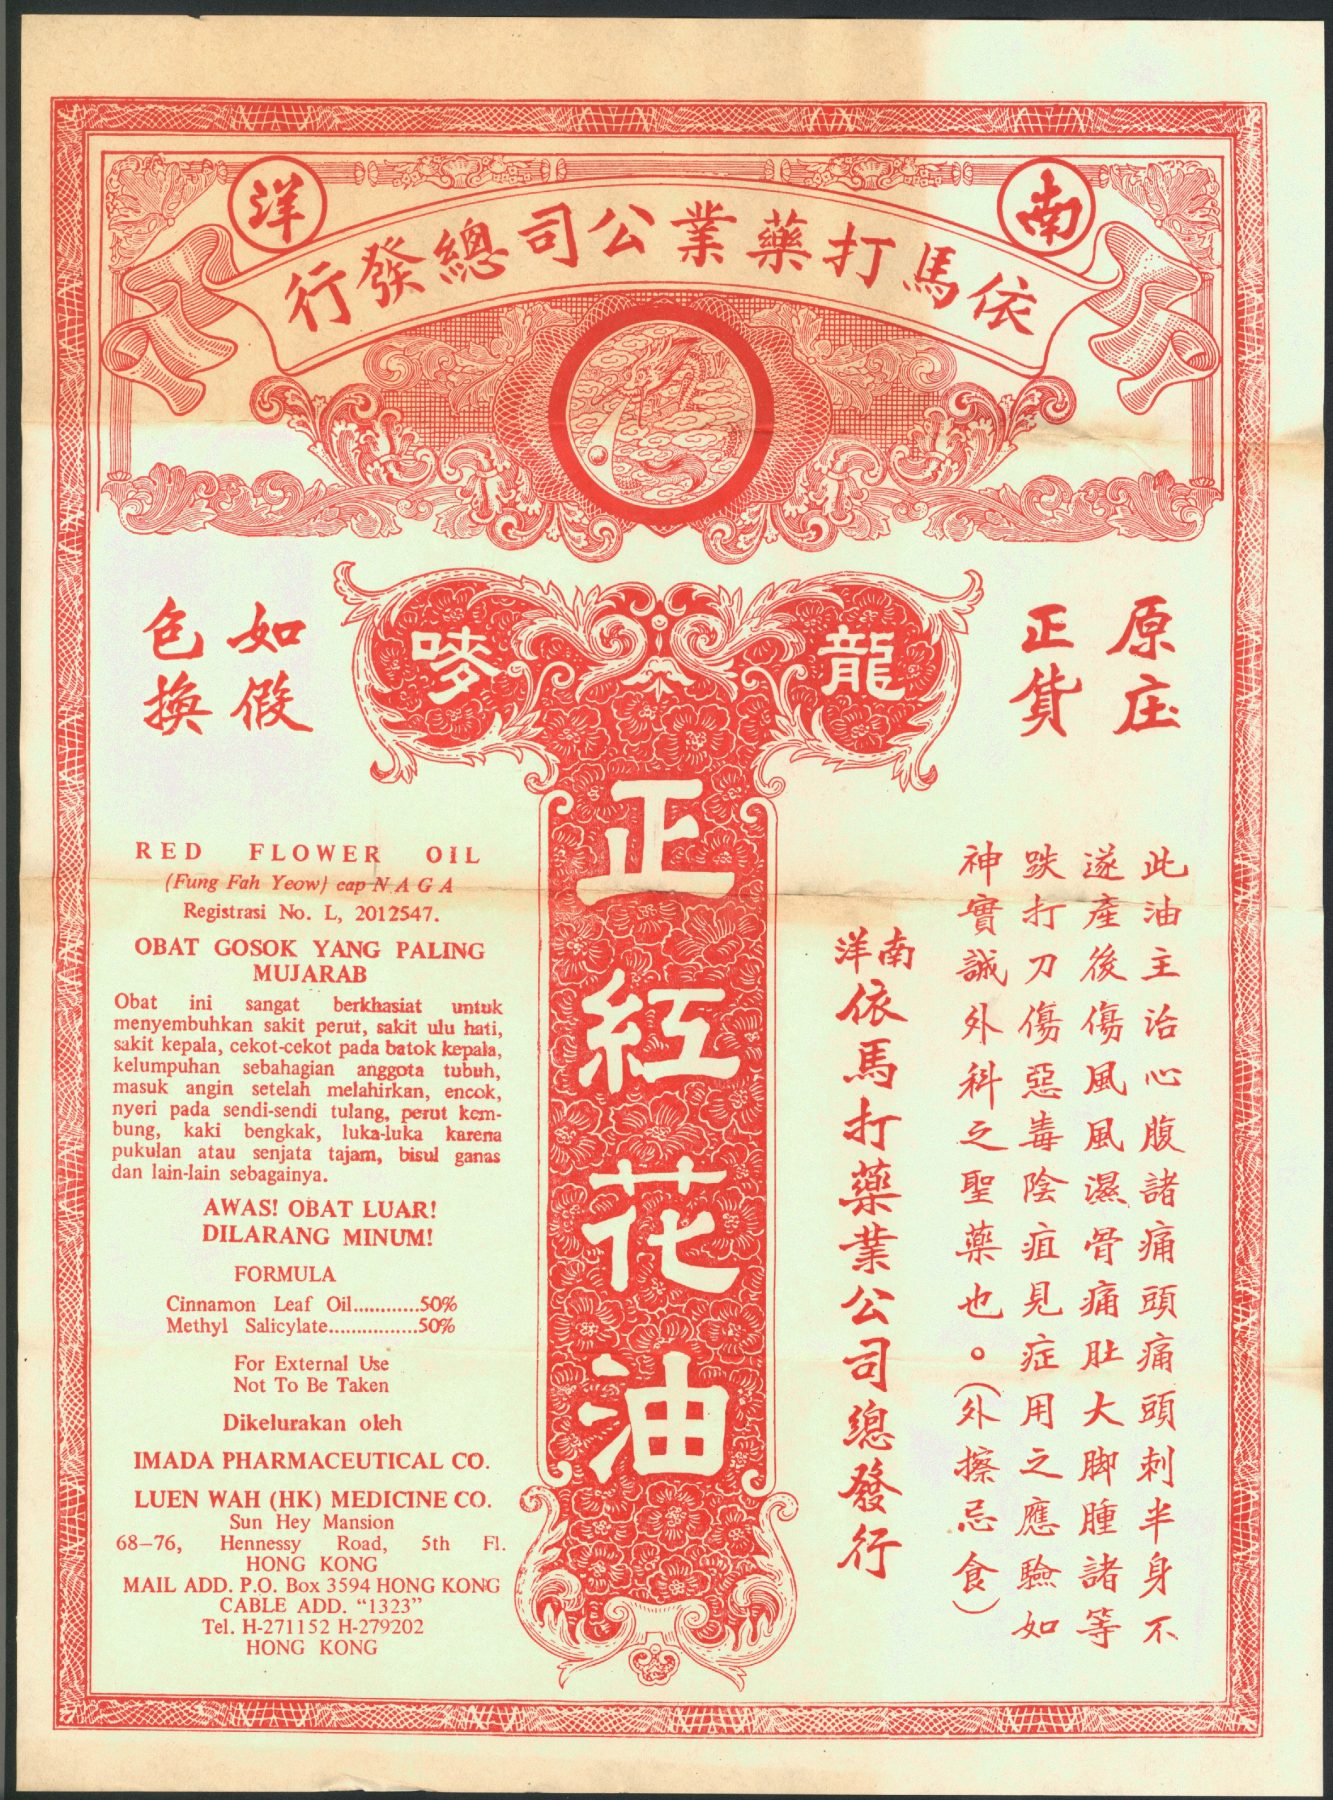 南洋
依馬打藥業公司總發行
原庄
正貨
如假
包換
龍嘜
正紅花油
此油主治心腹諸痛頭痛頭刺半身不
遂產後傷風風濕骨痛肚大脚腫諸等
跌打刀傷惡毒陰疽見症用之應驗如
神實誠外科之聖藥也。(外擦忌食)
南洋依馬打藥業公司總發行
RED FLOWER OIL
(Fung Fah Yeow) cap NAGA
Registrasi No. L, 2012547.
OBAT GOSOK YANG PALING
MUJARAB
Obat ini sangat berkhasiat untuk
menyembuhkan sakit perut, sakit ulu hati,
sakit kepala, cekot-cekot pada batok kepala,
kelumpuhan sebahagian anggota tubuh,
masuk angin setelah melahirkan, encok,
nyeri pada sendi-sendi tulang, perut kem-
bung, kaki bengkak, luka-luka karena
pukulan atau senjata tajam, bisul ganas
dan lain-lain sebagainya.
AWAS! OBAT LUAR!
DILARANG MINUM!
FORMULA
Cinnamon Leaf Oil............50%
Methyl Salicylate................50%
For External Use
Not To Be Taken
Dikelurakan oleh
IMADA PHARMACEUTICAL CO.
LUEN WAH (HK) MEDICINE CO.
Sun Hey Mansion
68–76, Hennessy Road, 5th Fl.
HONG KONG
MAIL ADD. P.O. Box 3594 HONG KONG
CABLE ADD. “1323”
Tel. H-271152 H-279202
HONG KONG